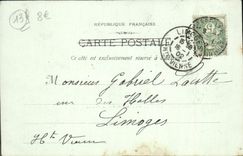 13) 8€
RÉPUBLIQUE FRANÇAISE
CARTE POSTALE
Ce côté est exclusivement réservé à
Monsieur Gabriel
rue des Halles
Limoges
Hte Vienne